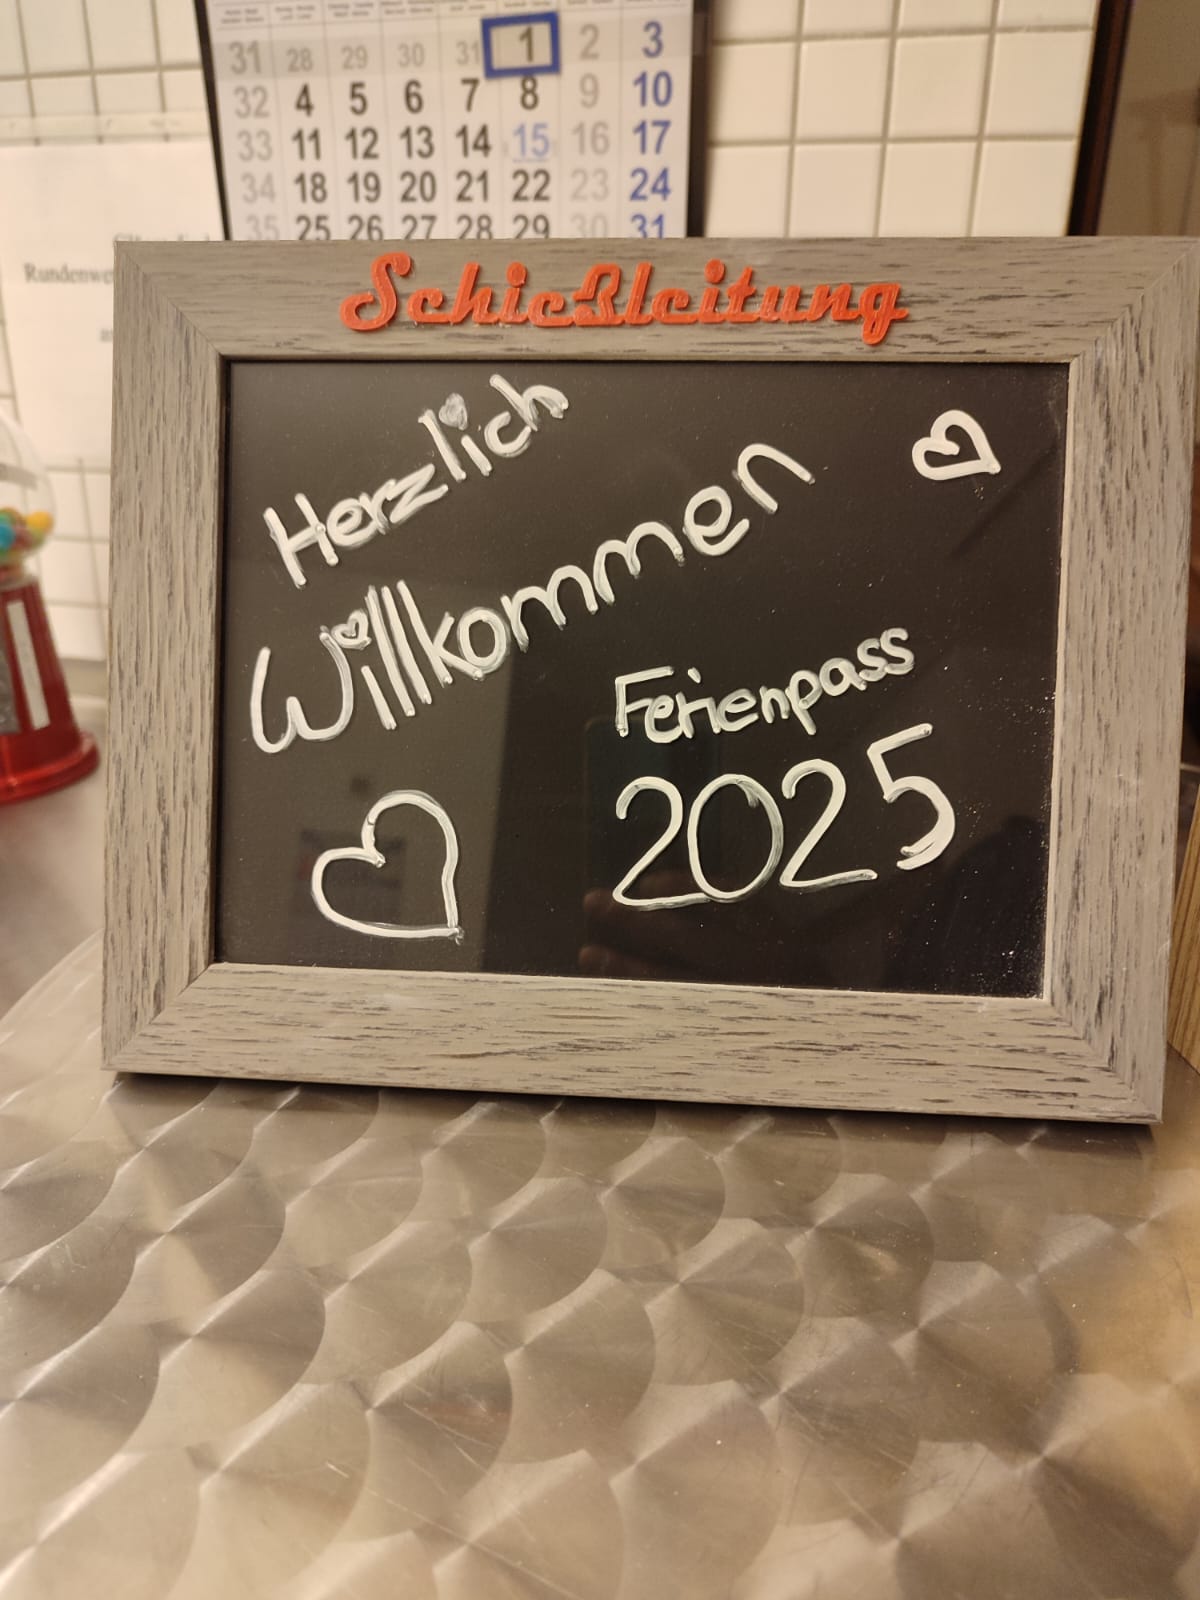 31 28 29 30 31 1 2 3
32 4 5 6 7 8 9 10
33 11 12 13 14 15 16 17
34 18 19 20 21 22 23 24
35 25 26 27 28 29 30 31
Schießleitung
Herzlich
Willkommen
Ferienpass
2025